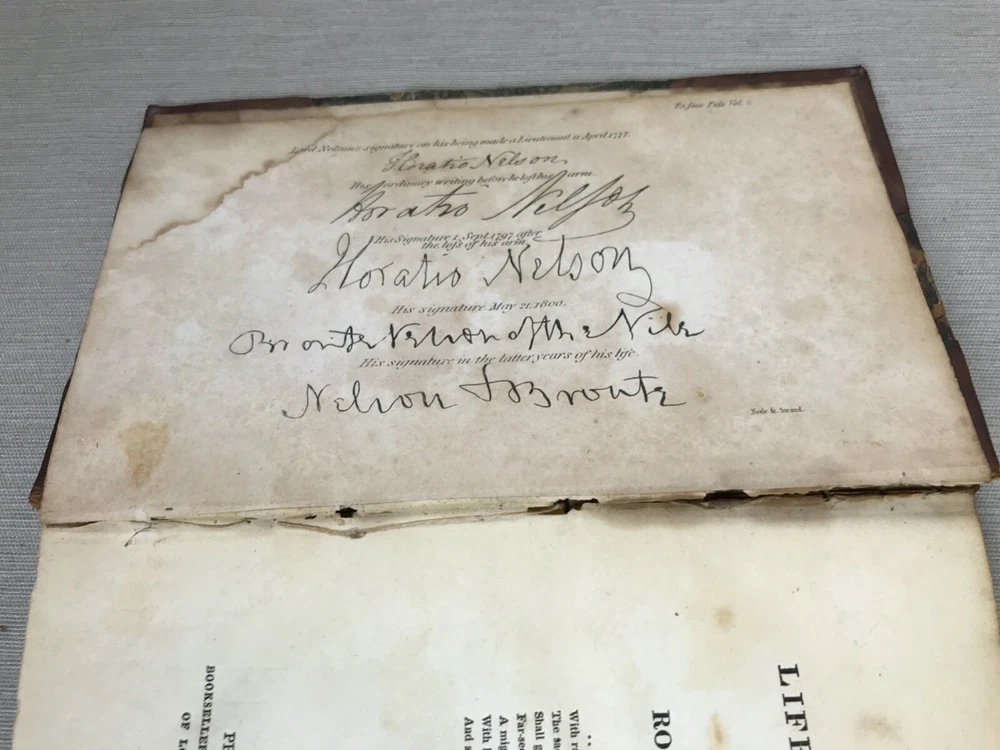 To face Title Vol. 1.
Lord Nelson's signature on his being made a Lieutenant 11 April 1777.
Horatio Nelson
His ordinary writing before he lost his arm
Horatio Nelson
His Signature 1. Sept. 1797 after
the loss of his arm.
Horatio Nelson
His signature May 21. 1800.
Bronte Nelson of the Nile
His signature in the latter years of his life.
Nelson & Bronte
LIFE
RO
With
The
Shall
Far-see
A mig
With
And
BOOKSELLER
OF LO